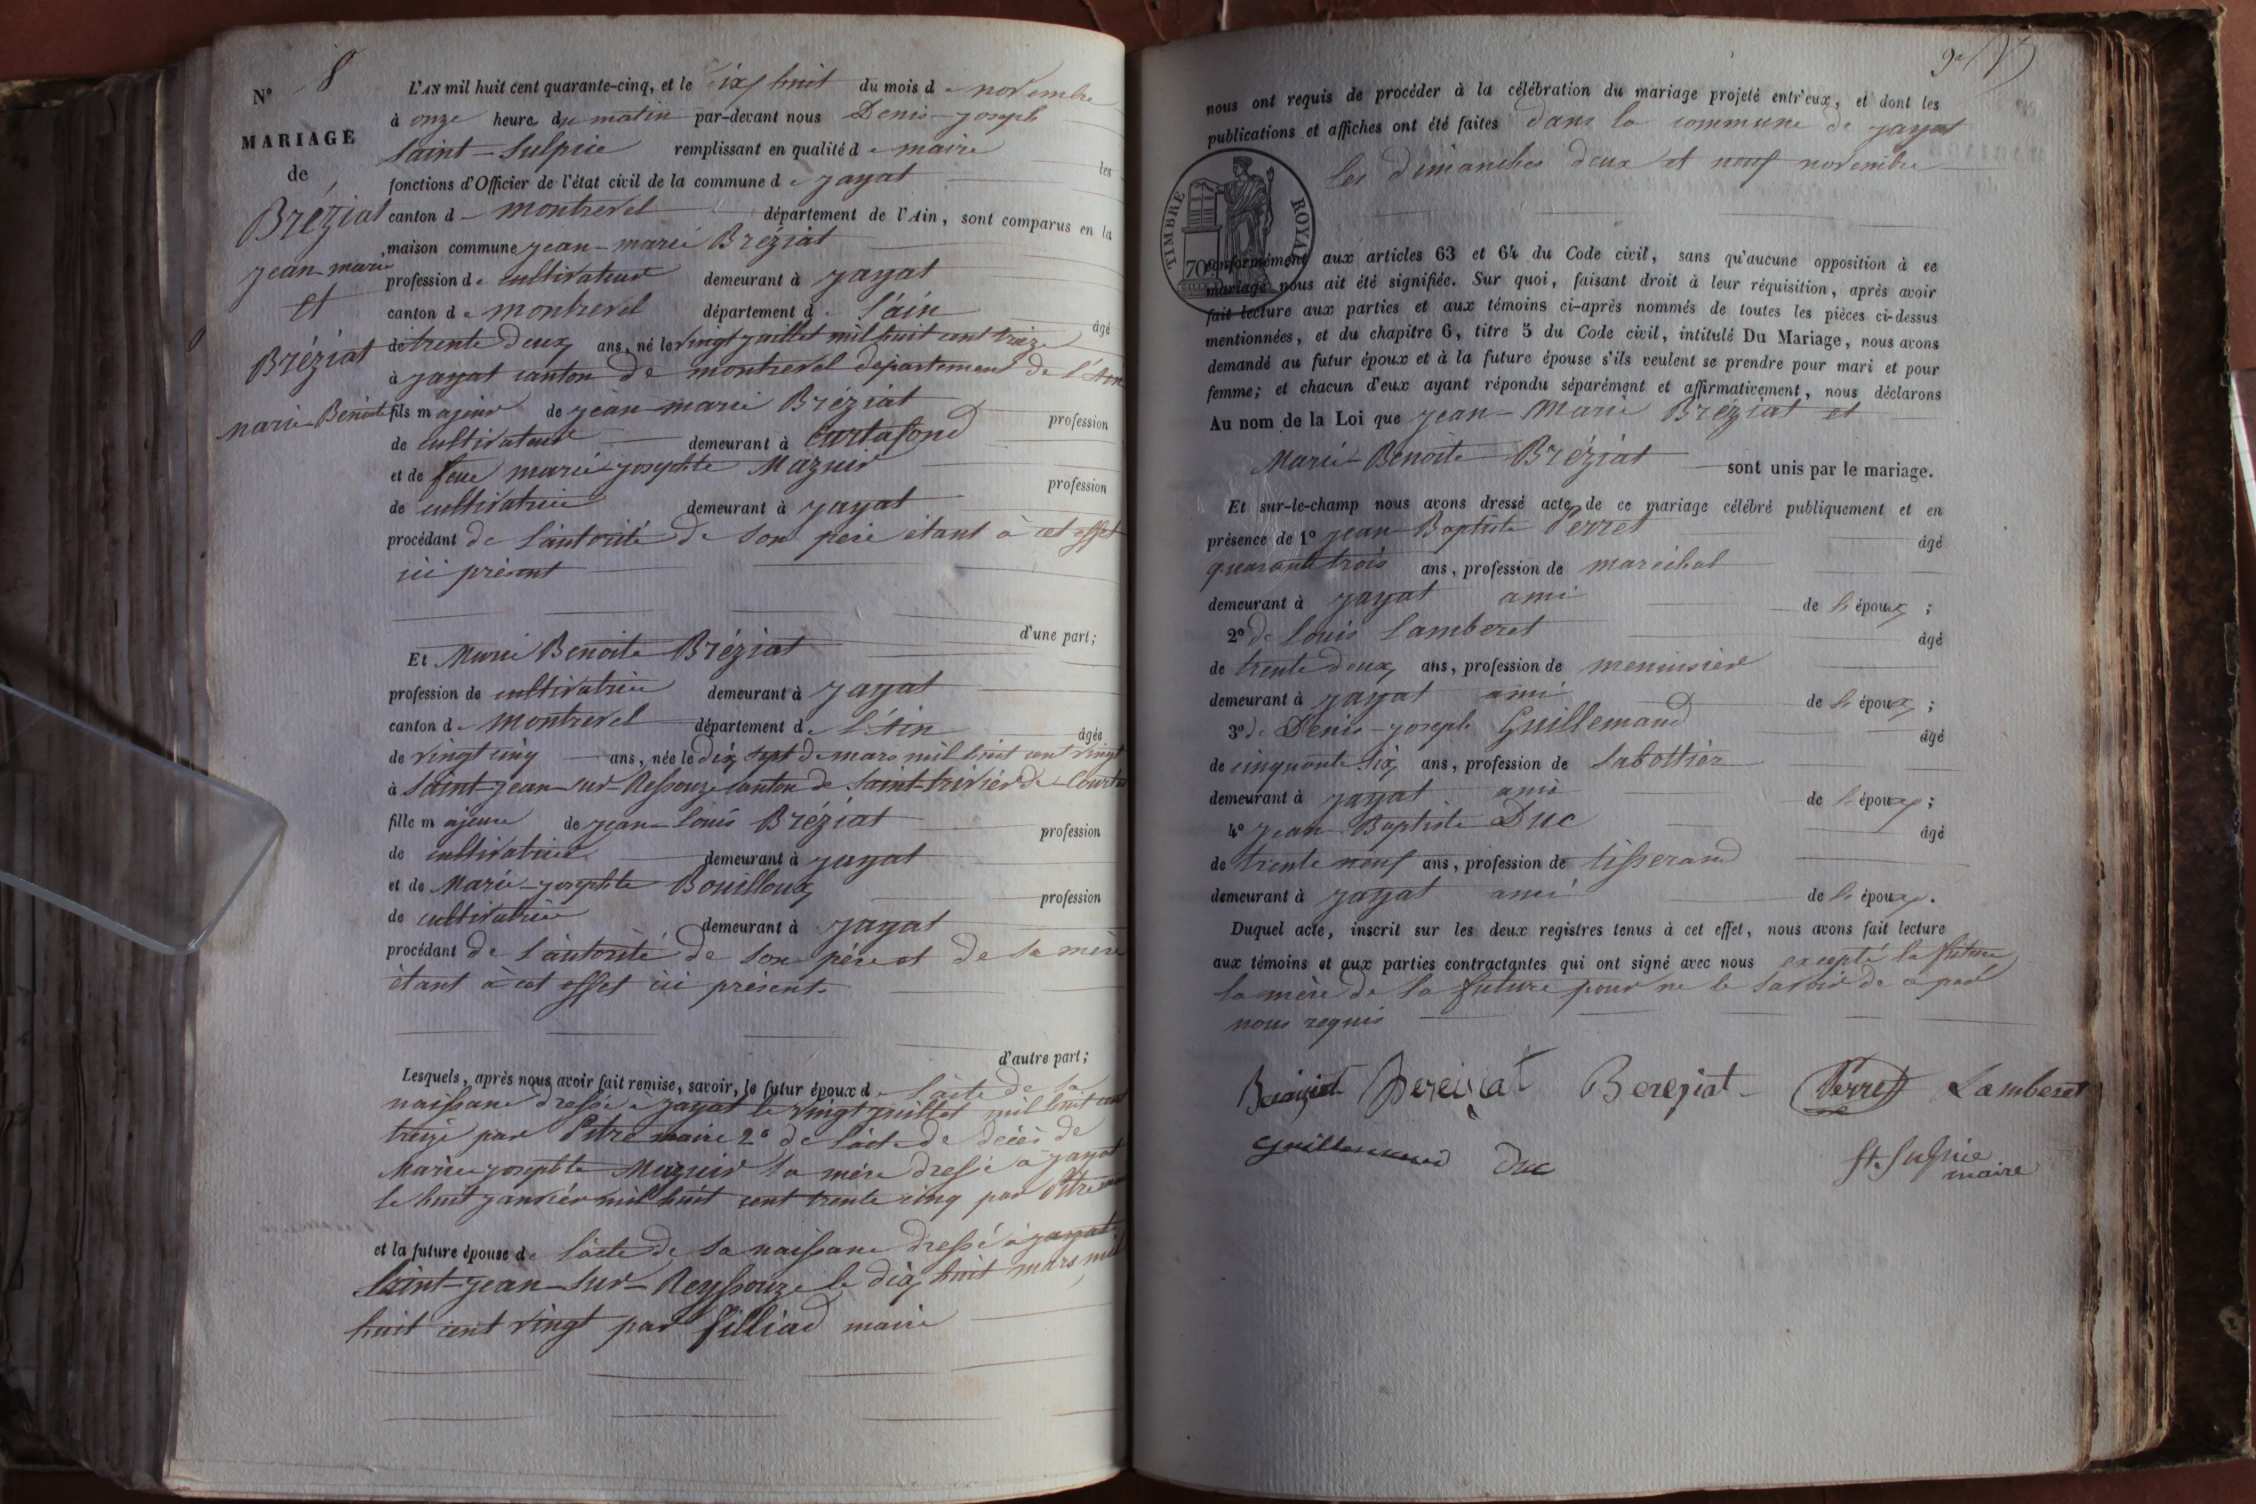 N° 8
MARIAGE
de
Bréziat
jean-marie
et
Bréziat
marie-Benoite
L'AN mil huit cent quarante-cinq, et le dix huit du mois de novembre
à onze heures du matin par-devant nous Denis-joseph
Saint-Sulpice remplissant en qualité de maire les
fonctions d'Officier de l'état civil de la commune de jayat
canton d montrevel département de l'Ain, sont comparus en la
maison commune jean-marie Bréziat
profession de cultivateur demeurant à jayat
canton de montrevel département de l'ain âgé
de trente deux ans, né le vingt juillet mil huit cent treize
à jayat canton de montrevel département de l'Ain
fils majeur de jean-marie Bréziat profession
de cultivateur demeurant à Curtafond
et de feue marie-josephte Mazuir profession
de cultivatrice demeurant à jayat
procédant de l'autorité de son père étant à cet effet
ici présent
d'une part;
Et Marie Benoite Bréziat
profession de cultivatrice demeurant à jayat
canton de montrevel département de l'Ain âgée
de vingt cinq ans, née le dix sept de mars mil huit cent vingt
à Saint-jean-sur-Ressouze canton de Saint-trivier de Courtes
fille majeure de jean-Louis Bréziat profession
de cultivatrice demeurant à jayat
et de Marie-josephte Bouilloux profession
de cultivatrice demeurant à jayat
procédant de l'autorité de son père et de sa mère
étant à cet effet ici présents
d'autre part;
Lesquels, après nous avoir fait remise, savoir, le futur époux de l'acte de sa
naissance dressé à jayat le vingt juillet mil huit cent
treize par Pitre maire 2° de l'acte de décès de
Marie josephte Mazuir sa mère dressé à jayat
le huit janvier mil huit cent trente cinq par Pitre
et la future épouse de l'acte de sa naissance dressé à jayat
Saint-jean-sur-Reyssouze le dix huit mars mil
huit cent vingt par Filliad maire
nous ont requis de procéder à la célébration du mariage projeté entr'eux, et dont les
publications et affiches ont été faites dans la commune de jayat
les dimanches deux et neuf novembre
TIMBRE ROYAL
70
conformément aux articles 63 et 64 du Code civil, sans qu'aucune opposition à ce
mariage nous ait été signifiée. Sur quoi, faisant droit à leur réquisition, après avoir
fait lecture aux parties et aux témoins ci-après nommés de toutes les pièces ci-dessus
mentionnées, et du chapitre 6, titre 5 du Code civil, intitulé Du Mariage, nous avons
demandé au futur époux et à la future épouse s'ils veulent se prendre pour mari et pour
femme; et chacun d'eux ayant répondu séparément et affirmativement, nous déclarons
Au nom de la Loi que jean-Marie Bréziat et
Marie-Benoite Bréziat sont unis par le mariage.
Et sur-le-champ nous avons dressé acte de ce mariage célébré publiquement et en
présence de 1° jean Baptiste Perret âgé
quarante trois ans, profession de maréchal
demeurant à jayat ami de l'époux;
2° de Louis Lamberet âgé
de trente deux ans, profession de menuisier
demeurant à jayat ami de l'époux;
3° de Denis-joseph Guillemaud âgé
de cinquante six ans, profession de sabottier
demeurant à jayat ami de l'époux;
4° jean Baptiste Duc âgé
de trente neuf ans, profession de tisserand
demeurant à jayat ami de l'époux.
Duquel acte, inscrit sur les deux registres tenus à cet effet, nous avons fait lecture
aux témoins et aux parties contractantes qui ont signé avec nous excepté la future
la mère de la future pour ne le savoir de ce par
nous requis
Bereziat Bereiziat Bereziat Perret Lamberet
Guillemaud Duc St. Sulpice
maire